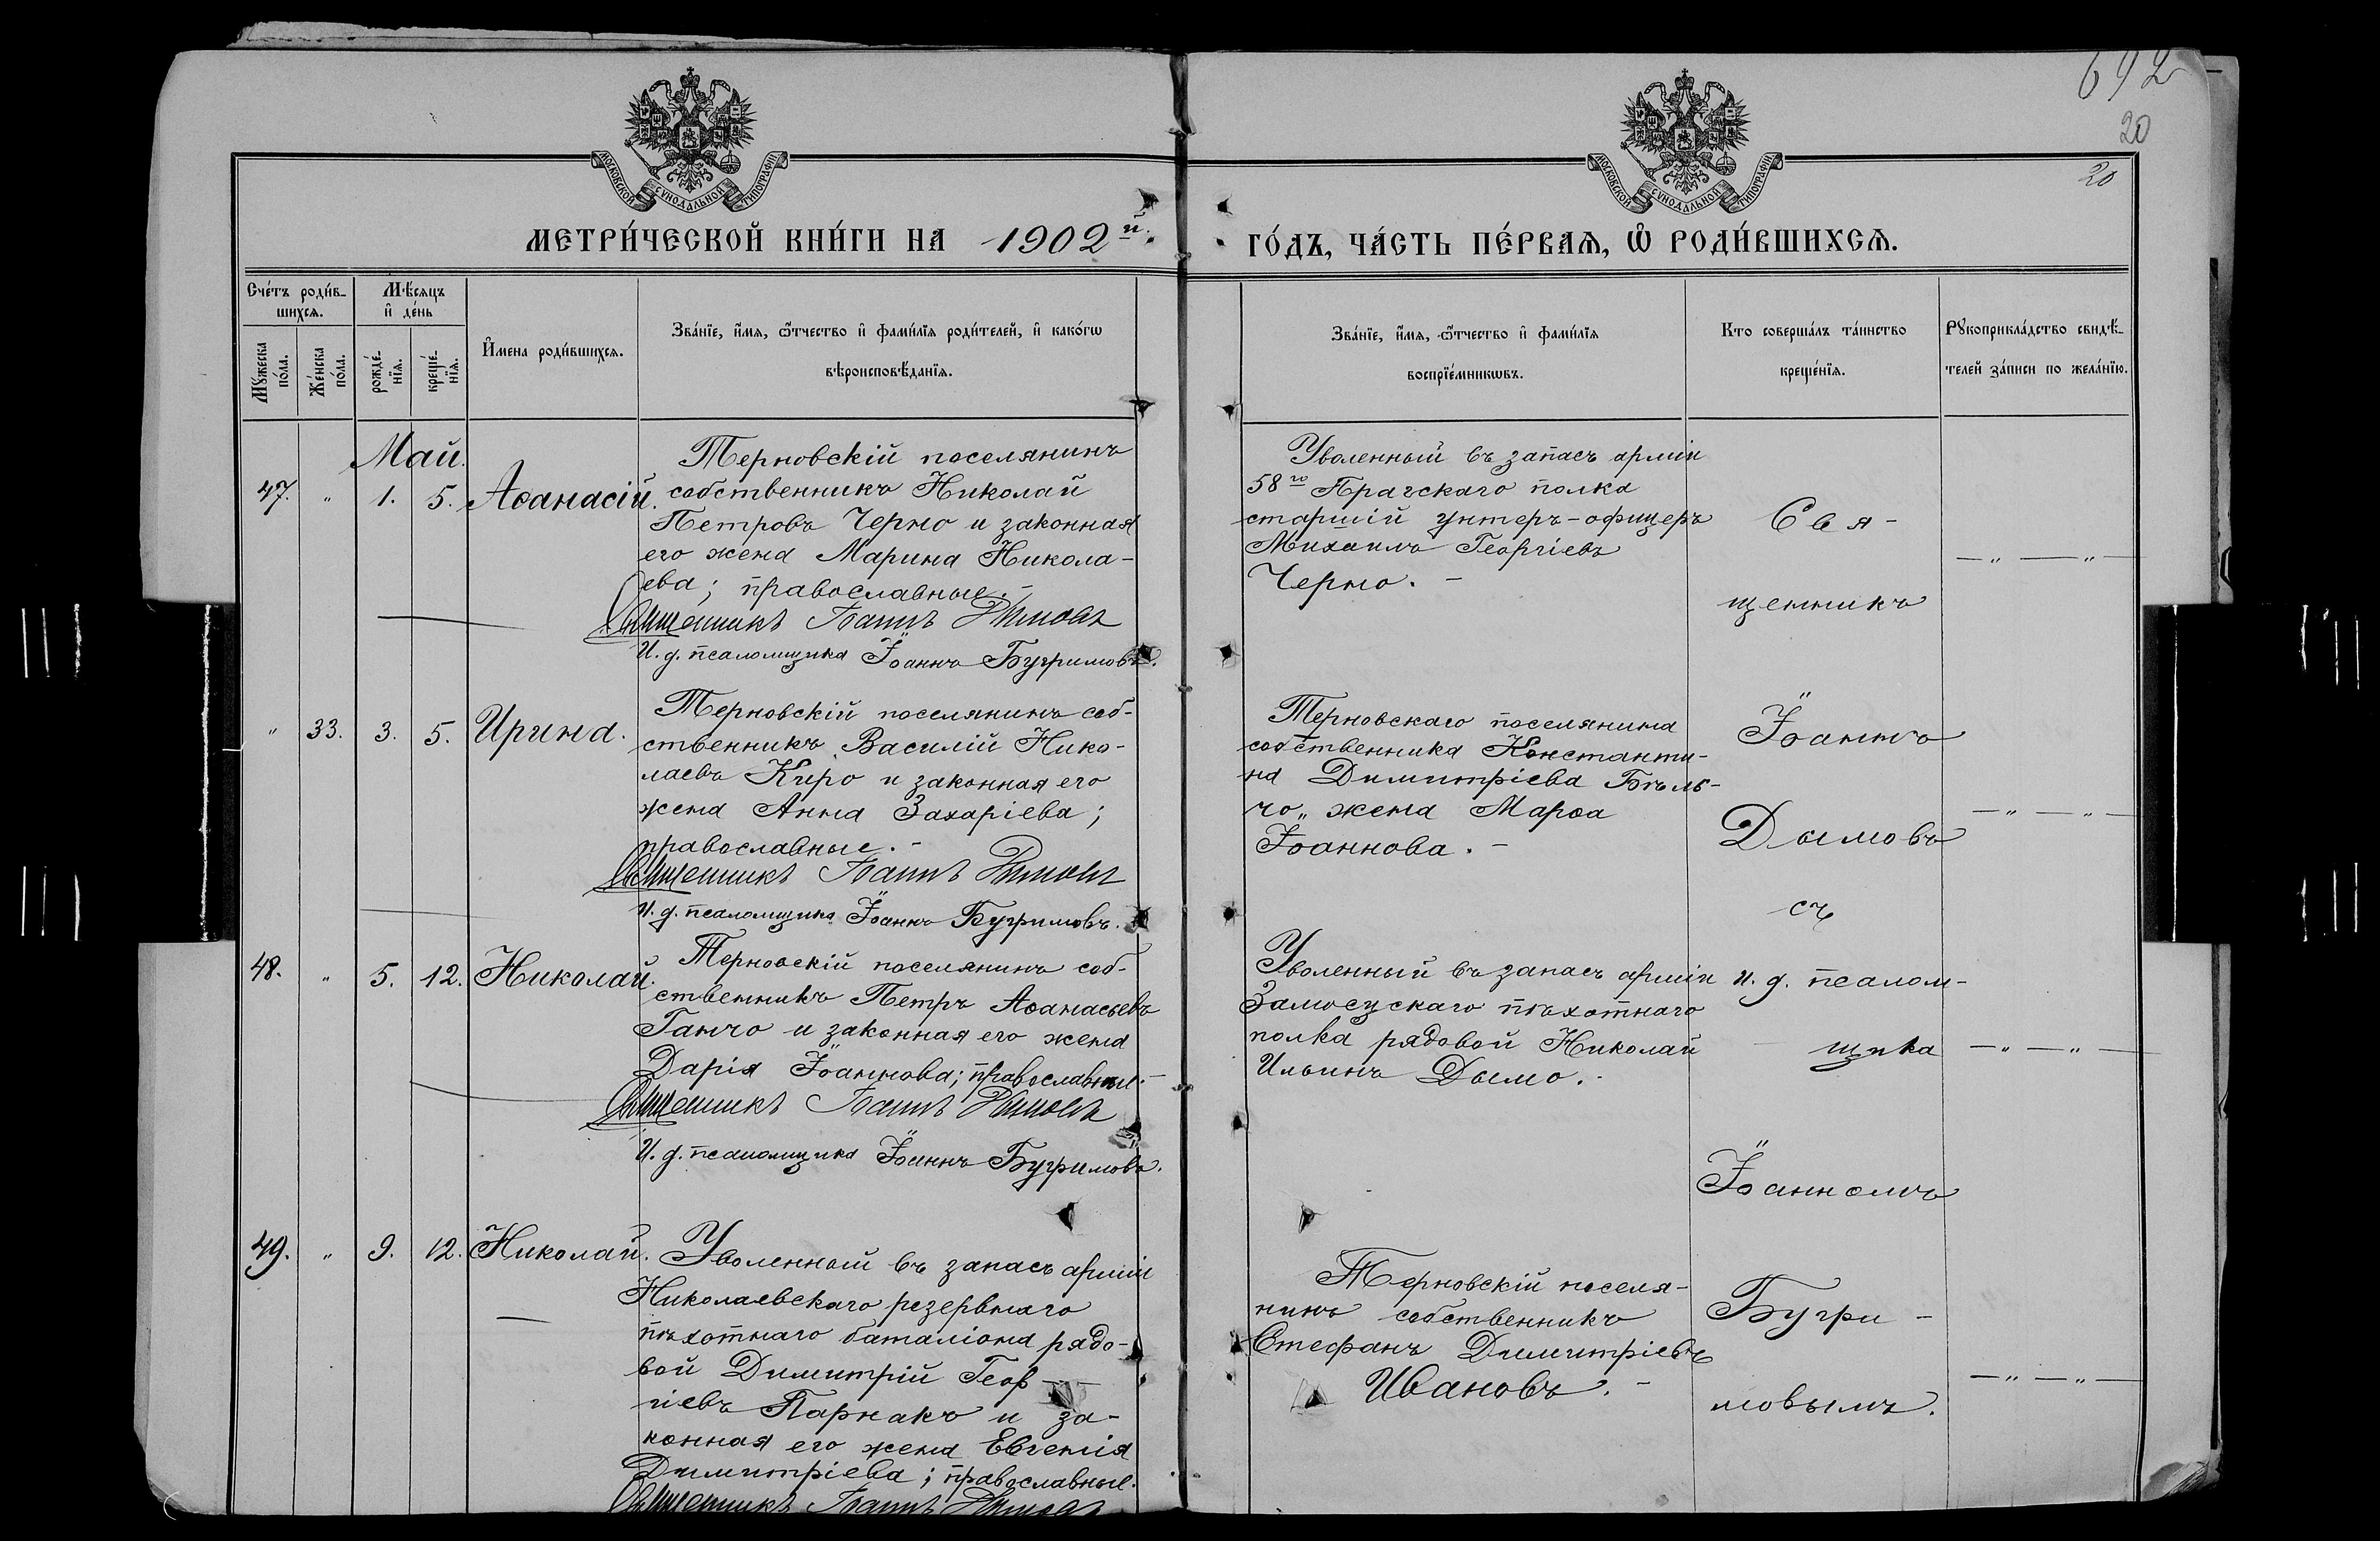 692
20
20
МОСКОВСКОЙ СѴНОДАЛЬНОЙ ТИПОГРАФІИ
МОСКОВСКОЙ СѴНОДАЛЬНОЙ ТИПОГРАФІИ
МЕТРИ́ЧЕСКОЙ КНИ́ГИ НА 1902й.
ГО́ДЪ, ЧА́СТЬ ПЕ́РВАѦ, Ѽ РОДИ́ВШИХСѦ.
Сче́тъ роди́в-
шихсѧ.
Мѣ́сѧцъ
и҆ де́нь
Мꙋ́жеска
по́ла.
Же́нска
по́ла.
рожде́-
нїѧ.
креще́-
нїѧ.
И҆мена роди́вшихсѧ.
Зва́нїе, и҆́мѧ, ѻ҆́тчество и҆ фами́лїѧ роди́телей, и҆ како́гѡ
вѣроисповѣ́данїѧ.
Зва́нїе, и҆́мѧ, ѻ҆́тчество и҆ фами́лїѧ
воспрїе́мникѡвъ.
Кто соверша́лъ та́инство
креще́нїѧ.
Рꙋкоприкла́дство свидѣ́-
телей за́писи по жела́нїю.
Май.
47. " 1. 5. Аѳанасій.
Терновскій поселянинъ
собственникъ Николай
Петровъ Черно и законная
его жена Марина Никола-
ева; православные.-
Священникъ Іоаннъ Дымовъ
И. д. псаломщика Іоаннъ Бугримовъ.
Уволенный въ запасъ арміи
58го Прагскаго полка
старшій унтеръ-офицеръ
Михаилъ Георгіевъ
Черно. -
" 33. 3. 5. Ирина.
Терновскій поселянинъ соб-
ственникъ Василій Нико-
лаевъ Киро и законная его
жена Анна Захаріева;
православные.-
Священникъ Іоаннъ Дымовъ
И. д. псаломщика Іоаннъ Бугримовъ.
Терновскаго поселянина
собственника Константи-
на Димитріева Бѣль-
чо" жена Марѳа
Іоаннова. -
48. " 5. 12. Николай.
Терновскій поселянинъ соб-
ственникъ Петръ Аѳанасьевъ
Ганчо и законная его жена
Дарія Іоаннова; православные.-
Священникъ Іоаннъ Дымовъ
И. д. псаломщика Іоаннъ Бугримовъ.
Уволенный въ запасъ арміи
Замосцскаго пѣхотнаго
полка рядовой Николай
Ильинъ Дымо. -
49. " 9. 12. Николай.
Уволенный въ запасъ арміи
Николаевскаго резервнаго
пѣхотнаго баталіона рядо-
вой Димитрій Геор-
гіевъ Парнакъ и за-
конная его жена Евгенія
Димитріева; православные.
Священникъ Іоаннъ Дымовъ
Терновскій поселя-
нинъ собственникъ
Стефанъ Димитріевъ
Ивановъ. -
Свя-
щенникъ
Іоаннъ
Дымовъ
съ
и. д. псалом-
щика
Іоанномъ
Бугри-
мовымъ.
— " — " —
— " — " —
— " — " —
— " — " —